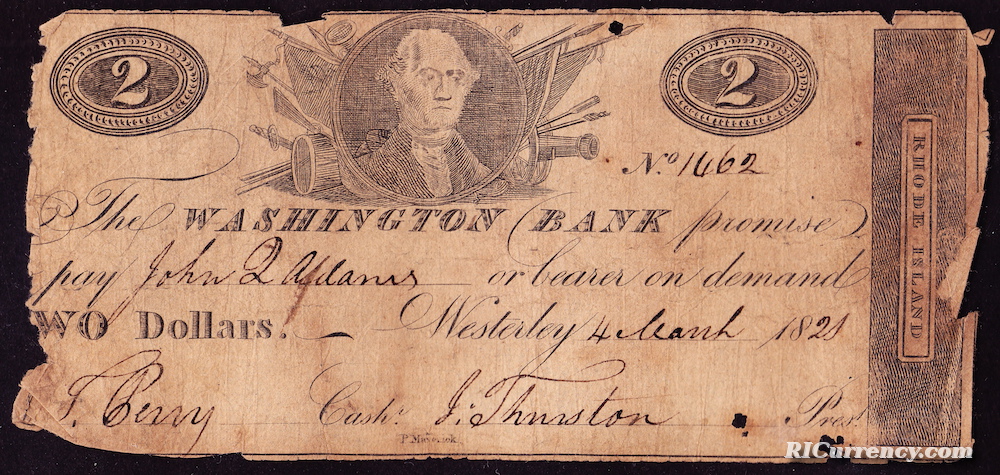 2 2
No. 1462
The WASHINGTON BANK promise
pay John Q Adams or bearer on demand
WO Dollars. Westerley 4 March 1821
T. Perry Cashr. J. Thurston Prest.
P. Maverick
RHODE ISLAND
RICurrency.com